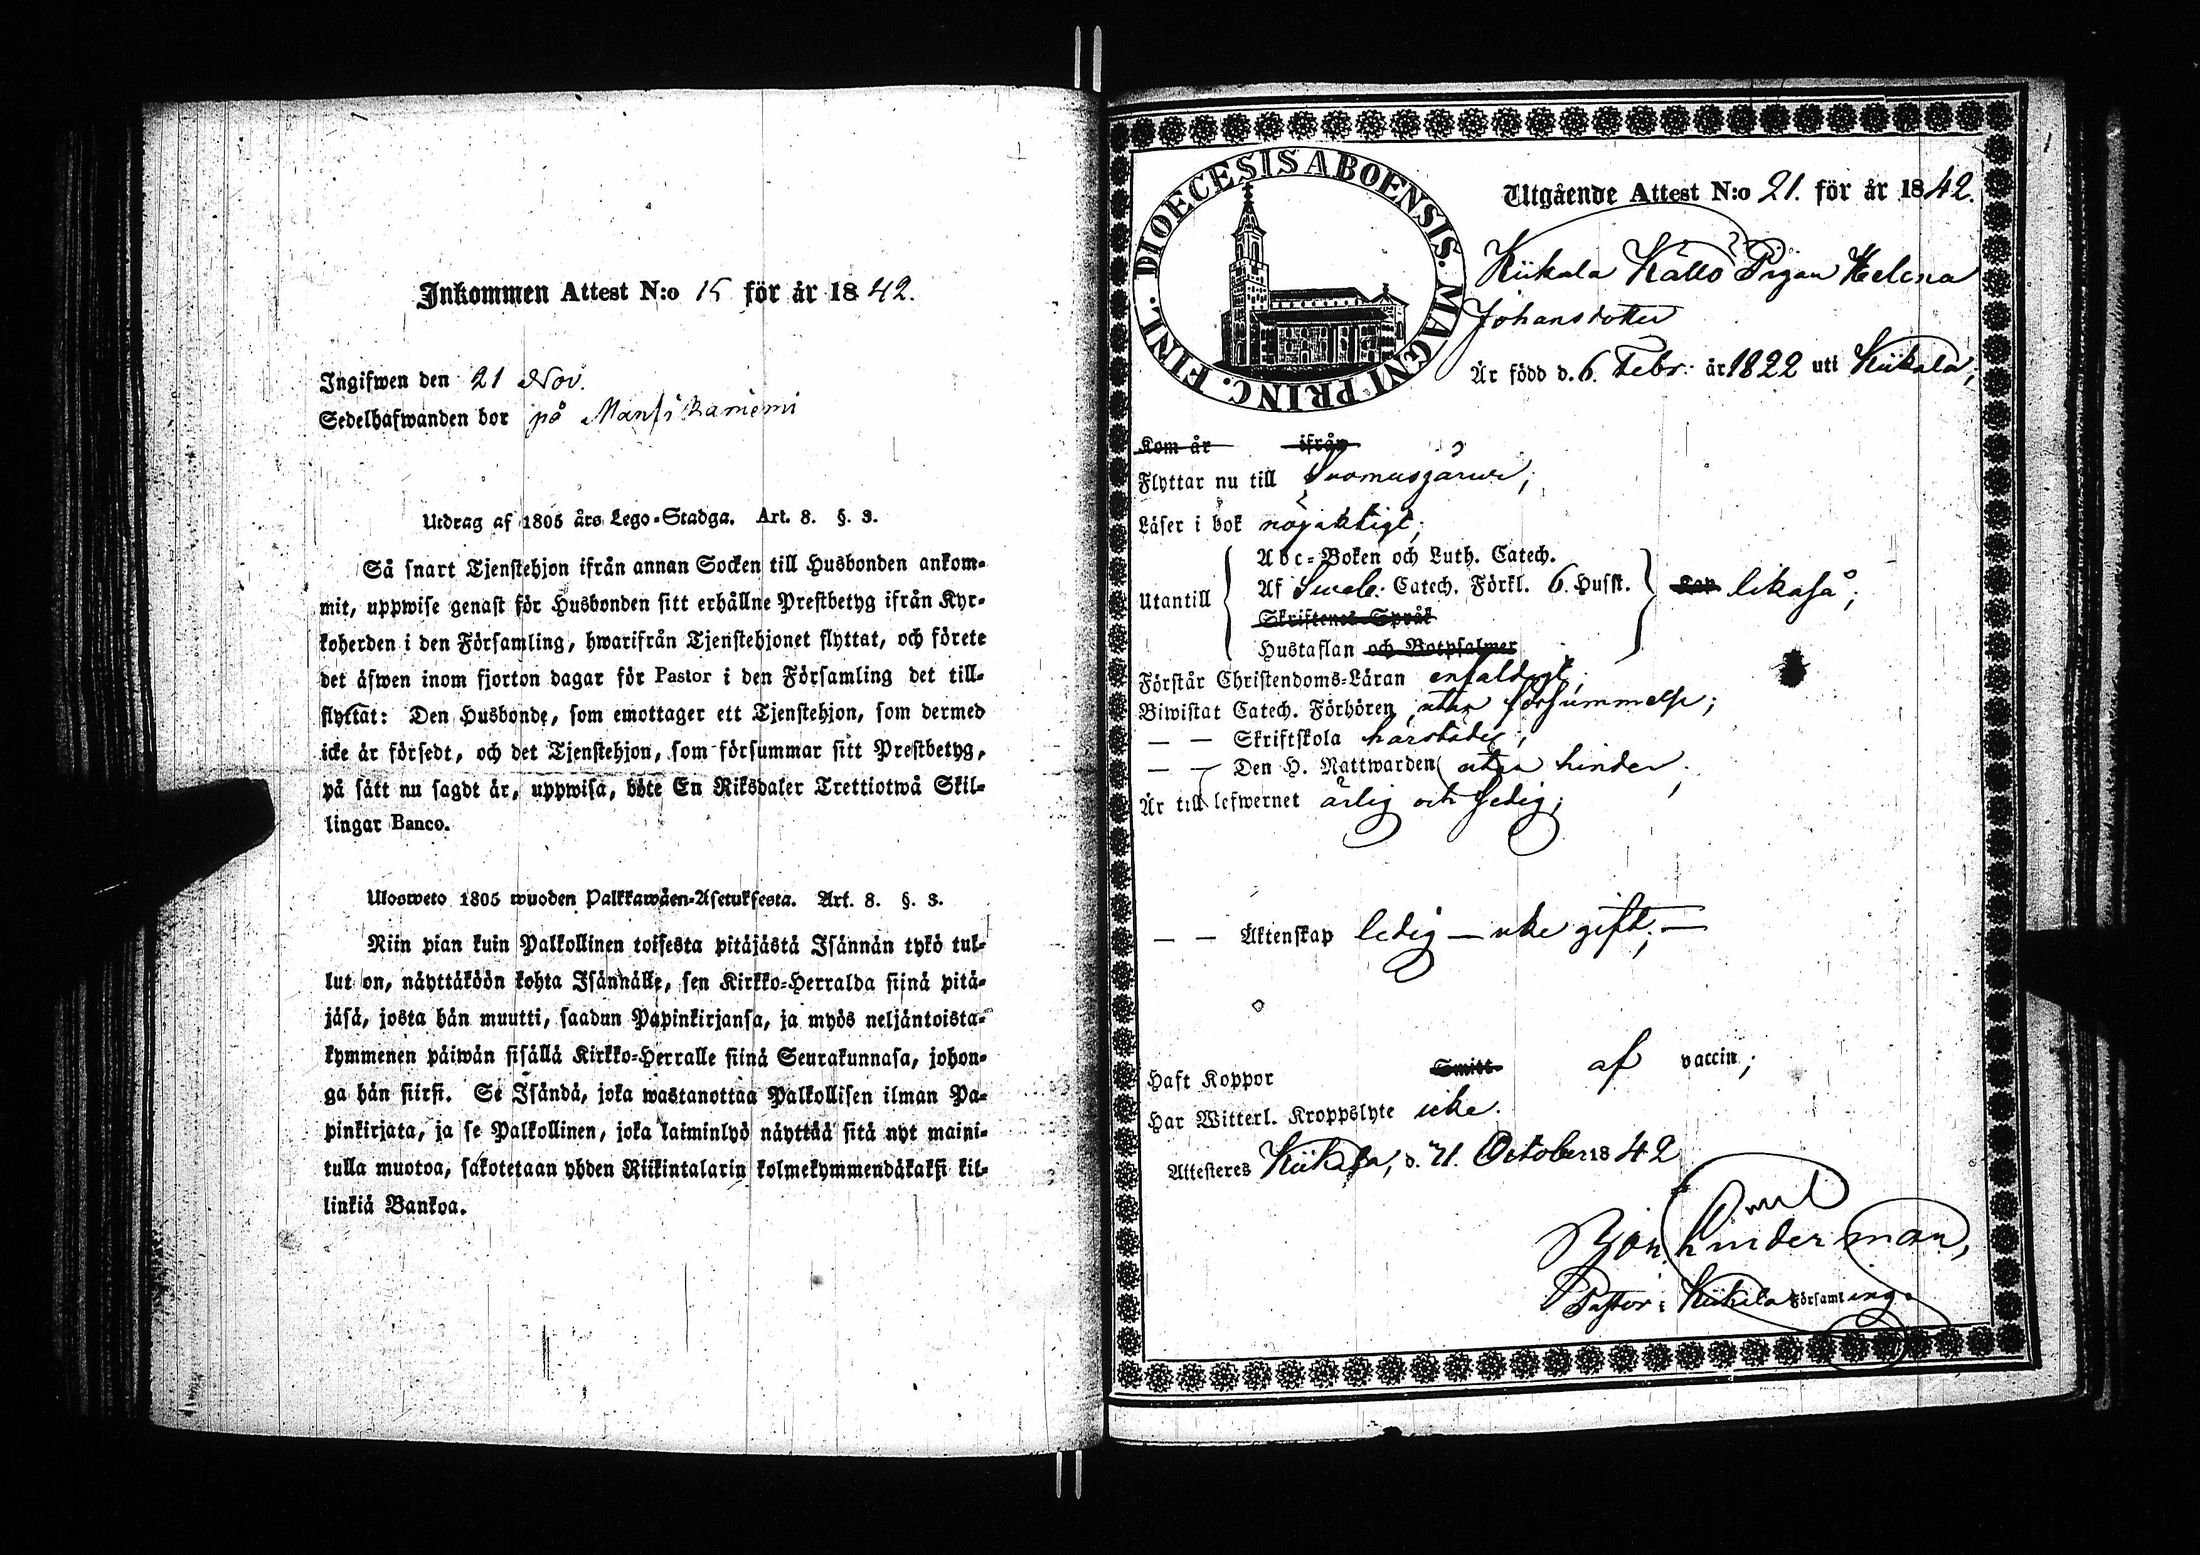 Inkommen Attest N:o 15 för år 1842.
Ingifwen den 21 Nov.
Sedelhafwanden bor på Mansikaniemi
Utdrag af 1805 års Lego-Stadga. Art. 8. §. 3.
Så snart Tjenstehjon ifrån annan Socken till Husbonden ankom-
mit, uppwise genast för Husbonden sitt erhållne Prestbetyg ifrån Kyr-
koherden i den Församling, hwarifrån Tjenstehjonet flyttat, och förete
det äfwen inom fjorton dagar för Pastor i den Församling det till-
flyttat: Den Husbonde, som emottager ett Tjenstehjon, som dermed
icke är försedt, och det Tjenstehjon, som försummar sitt Prestbetyg,
på sätt nu sagdt är, uppwisa, böte En Riksdaler Trettiotwå Skil-
lingar Banco.
Ulosweto 1805 wuoden Palkkawäen-Asetuksesta. Art. 8. §. 3.
Niin pian kuin Palkollinen toisesta pitäjästä Isännän tykö tul-
lut on, näyttäköön kohta Isännälle, sen Kirkko-Herralda siinä pitä-
jäsä, josta hän muutti, saadun Papinkirjansa, ja myös neljäntoista-
kymmenen päiwän sisällä Kirkko-Herralle siinä Seurakunnasa, johon-
ga hän siirsi. Se Isändä, joka wastanottaa Palkollisen ilman Pa-
pinkirjata, ja se Palkollinen, joka laiminlyö näyttää sitä nyt maini-
tulla muotoa, sakotetaan yhden Riikintalarin kolmekymmendäkaksi kil-
linkiä Bankoa.
DIOECESIS ABOENSIS. MAGNI PRINC. FINL.
Utgående Attest N:o 21. för år 1842.
Kiikala Källö Pigan Helena
Johansdotter
Är född d. 6. Febr: år 1822 uti Kiikala;
Kom år ifrån
Flyttar nu till Suomusjärvi;
Läser i bok nöjaktigt;
Abc-Boken och Luth. Catech.
Utantill Af Sveb. Catech. Förkl. 6. Husst. Kap likaså;
Skriftenes Språk
Hustaflan och Botpsalmer
Förstår Christendoms-Läran enfaldigt;
Biwistat Catech. Förhören utan försummelse;
— — Skriftskola härstädes;
— — Den H. Nattwarden utan hinder;
Är till lefwernet ärlig och sedig;
— — Äktenskap ledig — icke gift; —
Haft Koppor Smitt af vaccin;
Har Witterl. Kroppslyte icke.
Attesteres Kiikala, d. 21. October 1842
Linderman,
Pastor i Kiikala Församling.